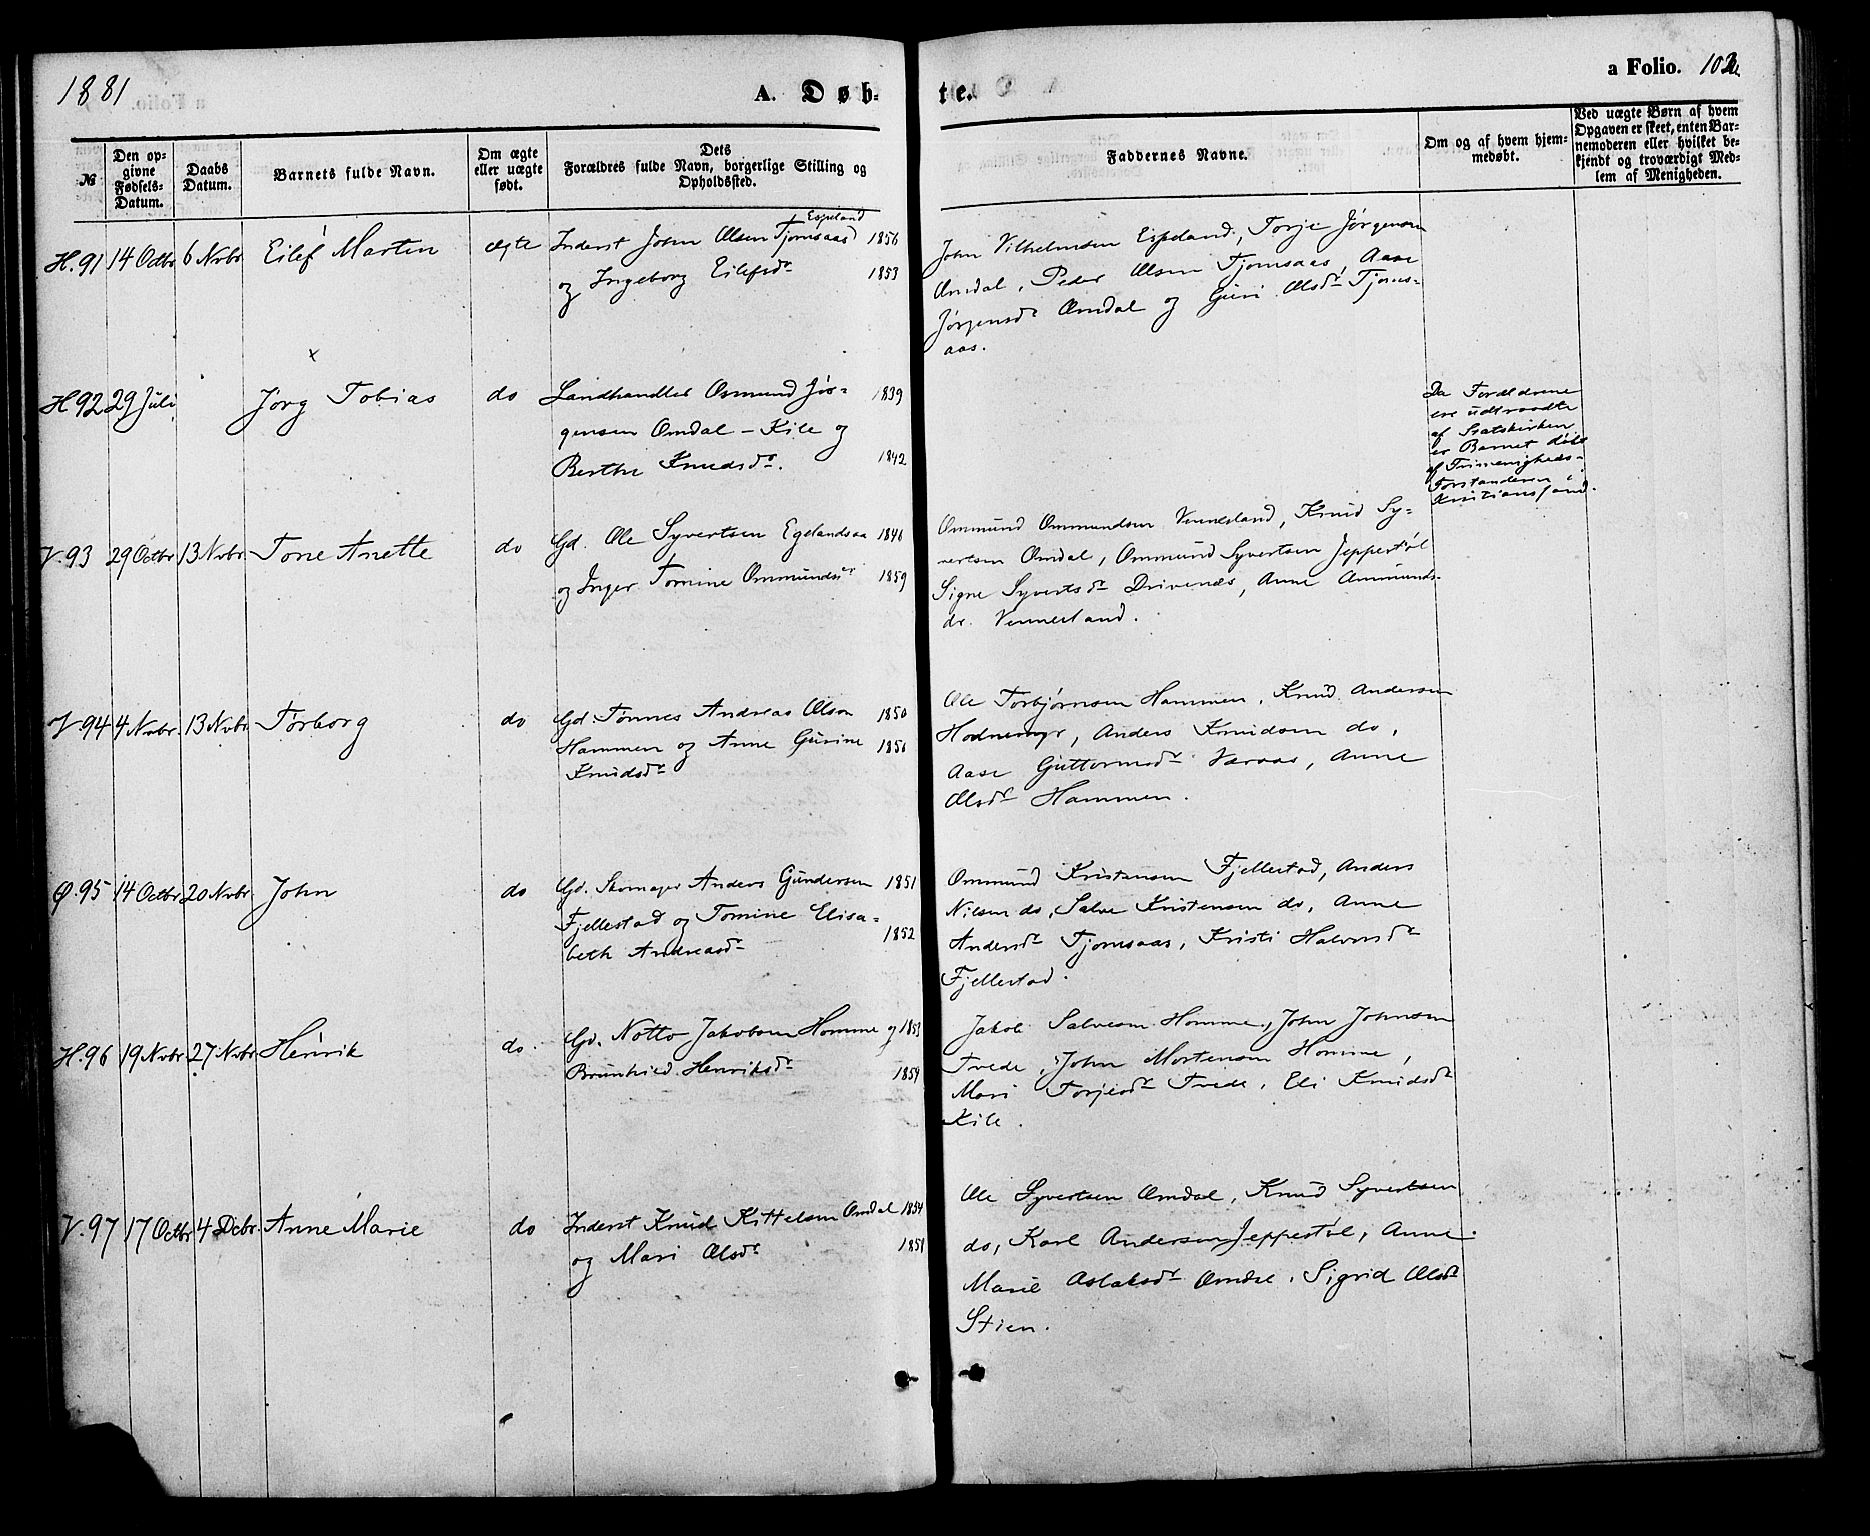 1881
A. Døb-
te.
a Folio. 102
№
Den op-
givne
Fødsels-
Datum.
Daabs
Datum.
Barnets fulde Navn.
Om ægte
eller uægte
født.
Dets
Forældres fulde Navn, borgerlige Stilling og
Opholdssted.
Faddernes Navne.
Om og af hvem hjem-
medøbt.
Ved uægte Børn af hvem
Opgaven er skeet, enten Bar-
nemoderen eller hvilket be-
kjendt og troværdigt Med-
lem af Menigheden.
H. 91 14 Octbr 6 Nvbr Eilef Martin ægte
Espeland
Inderst John Olsen Tjomsaas 1856
og Ingeborg Eilefsdr 1853
John Vilhelmsen Espeland, Torje Jørgensen
Omdal, Peder Olsen Tjomsaas, Aase
Jørgensdr Omdal og Guri Olsdr Tjoms-
aas.
x
H 92 29 Juli Jørg Tobias do
Landhandler Osmund Jør- 1839
gensen Omdal - Kile og
Berthe Knudsdr. 1842
Da Forældrene
ere udtraadte
af Statskirken
er Barnet døbt
af Trimenigheds-
Forstanderen i
Kristianssand.
V. 93 29 Octbr 13 Nvbr Tone Anette do
Gd. Ole Syvertsen Egelandsaa 1846
og Inger Tomine Ommundsdr 1859
Ommund Ommundsen Vennesland, Knud Sy-
vertsen Omdal, Ommund Syvertsen Jeppestøl
Signe Syvertsdr Drivenæs, Anne Ommunds-
dr. Vennesland.
V. 94 4 Nvbr. 13 Nvbr Torborg do
Gd. Tønnes Andreas Olsen 1850
Hammen og Anne Gurine 1856
Knudsdr
Ole Torbjørnsen Hammen, Knud Andersen
Hodnemyr, Anders Knudsen do,
Aase Guttormsdr Væraas, Anne
Olsdr Hammen.
Ø. 95 14 Octbr 20 Nvbr. John do
Gd. Skomager Anders Gundersen 1851
Fjellestad og Tomine Elisa-
beth Andreasdr 1852
Ommund Kristensen Fjellestad, Anders
Nilsen do, Salve Kristensen do, Anne
Andersdr Tjomsaas, Kristi Halvorsdr
Fjellestad.
H. 96 19 Nvbr. 27 Nvbr Henrik do.
Gd. Notto Jakobsen Homme og 1853
Brunhild Henriksdr 1854
Jakob Salvesen Homme, John Johnsen
Tvede, John Mortensen Homme,
Mari Torjesdr Tvede, Eli Knudsdr
Kile.
V. 97 17 Octbr 4 Dcbr. Anne Marie do
Inderst Knud Kittelsen Omdal 1854
og Mari Olsdr 1851
Ole Syvertsen Omdal, Knud Syvertsen
do, Karl Andersen Jeppestøl, Anne
Marie Aslaksdr Omdal, Sigrid Olsdr
Stien.